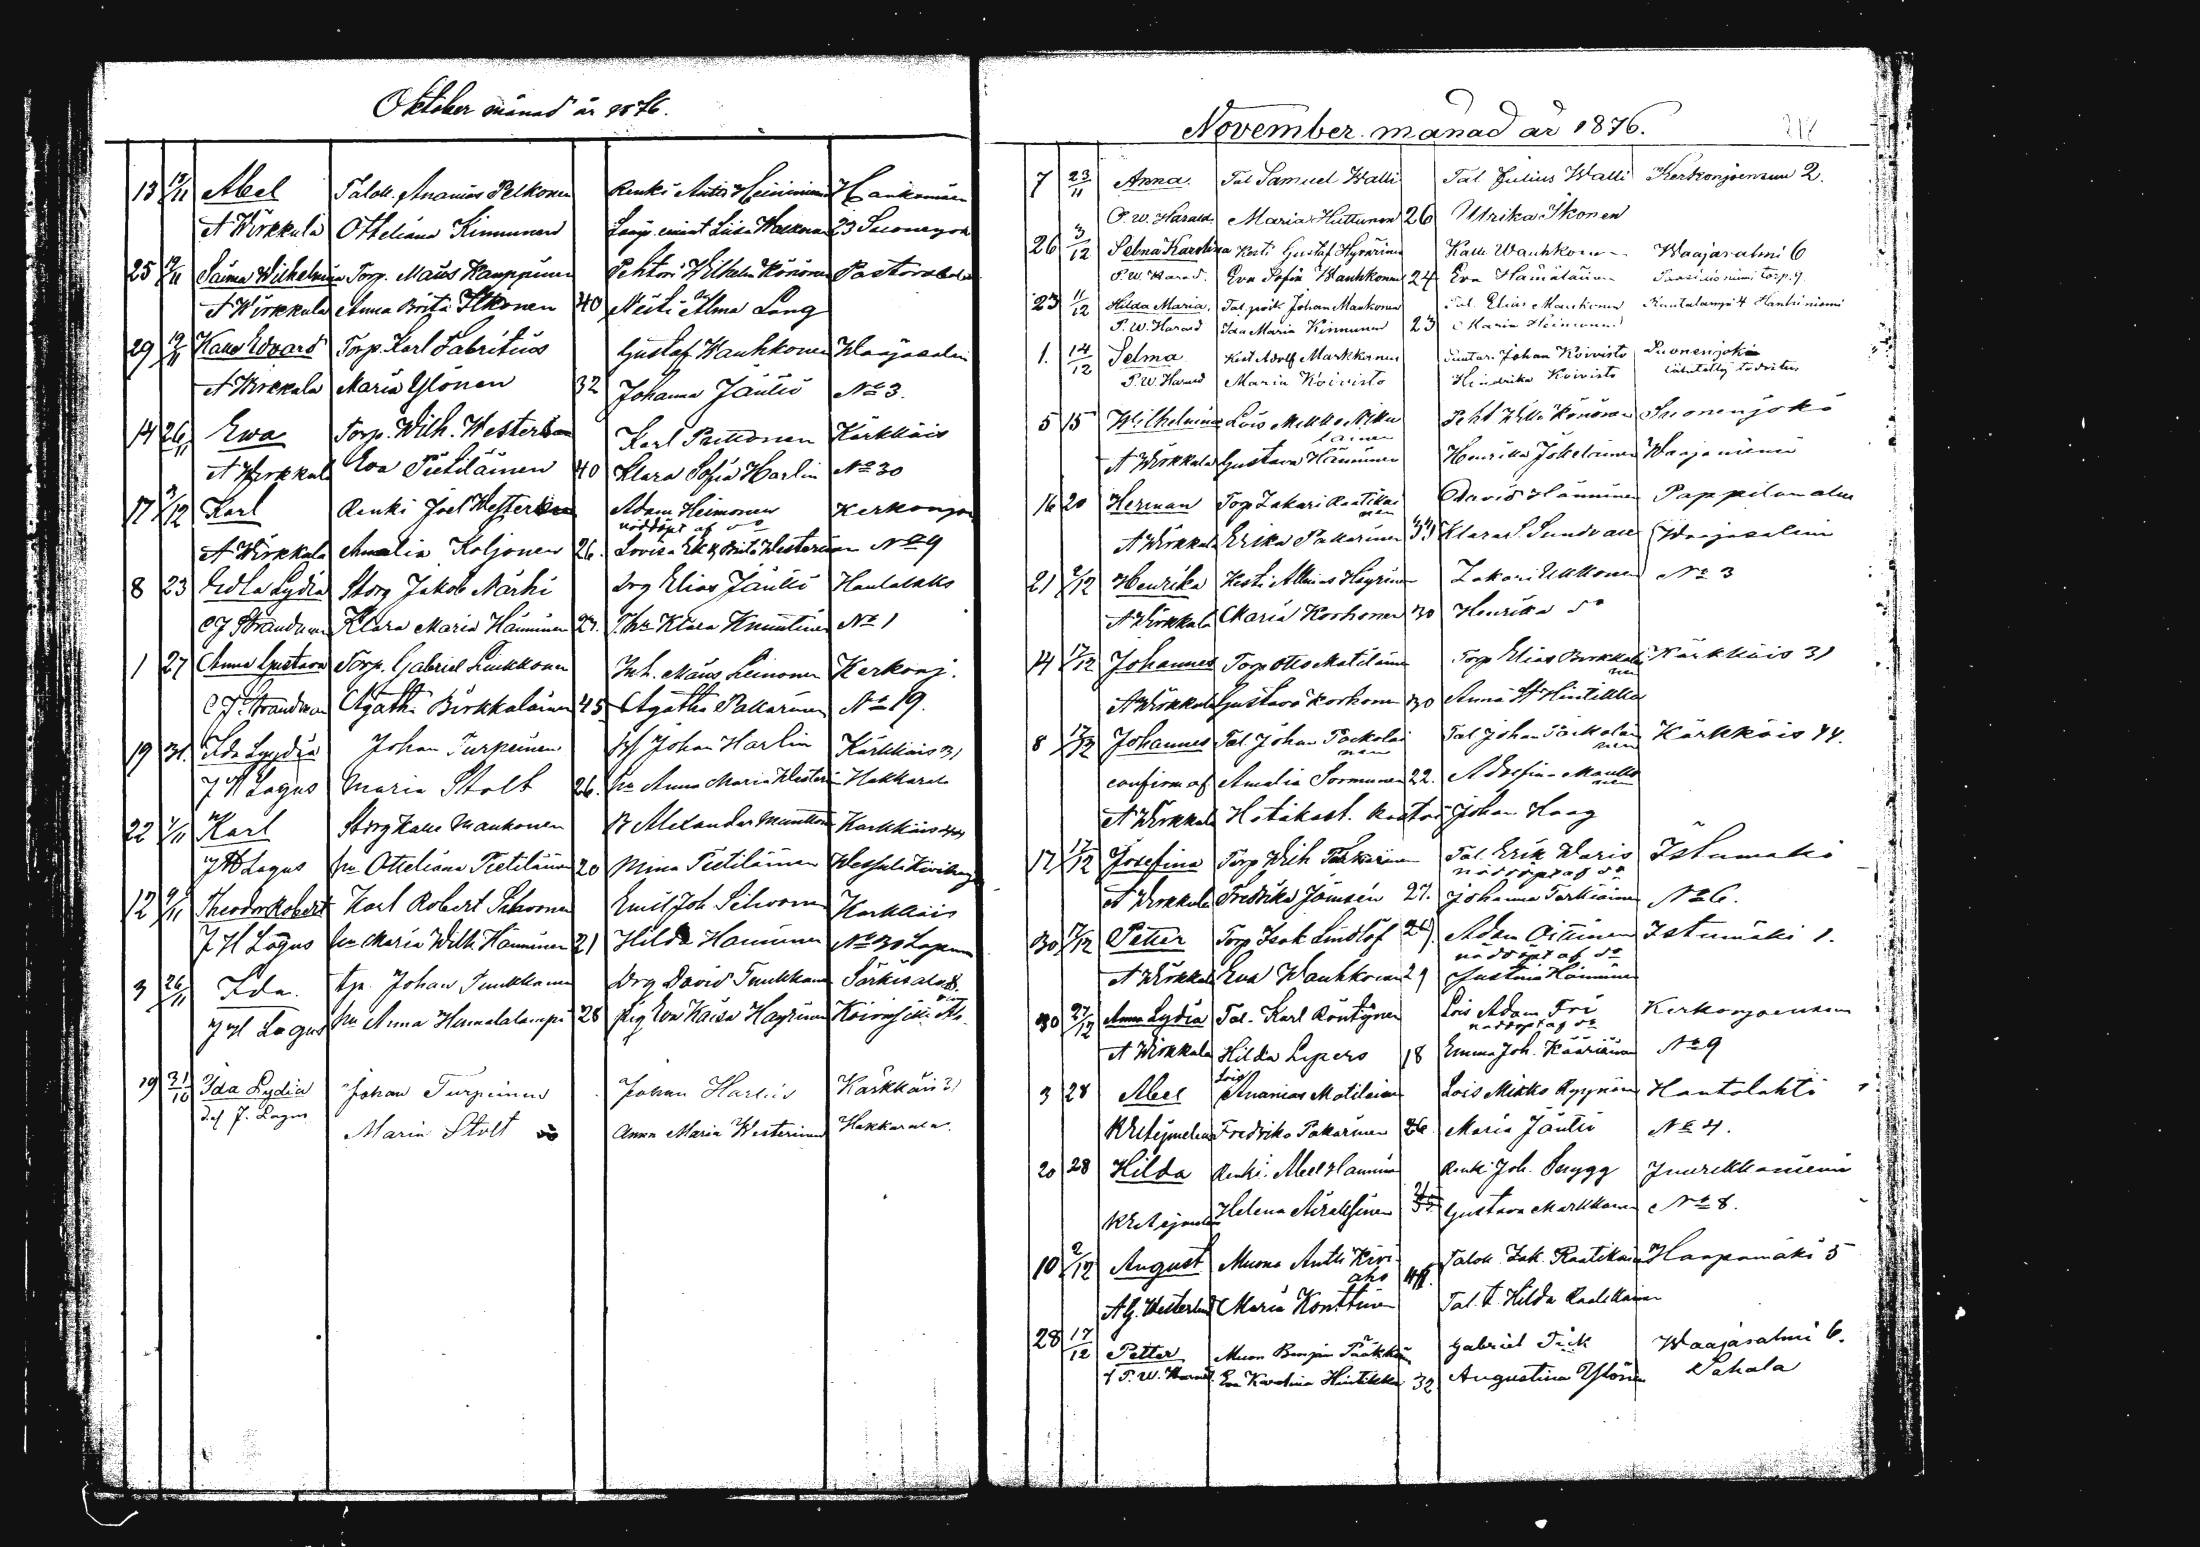 Oktober månad år 1876.
13 12/11 Abel Talok. Ananias Pelkonen Renki Antti Heinonen Hankamäen
A Wirkkula Otteliana Kinnunen Liisa 23 Suonenjok
25 12/11 Saima Wilhelmina Torp. Maus Kauppinen Pehtori Wilhelm Könönen
A Wirkkula Anna Brita Ikonen 40 Neiti Alma Lang
29 19/11 Kalle Edvard Torp. Karl Fabritius Gustaf Wauhkonen Waajasalmi
A Wirkkula Maria Ylönen 32 Johanna Jäntti No 3.
14 26/11 Ewa Torp. Wilh. Westerinen Karl Karkkais
A Wirkkula Eva Pietiläinen 40 Klara Sofia Harlin No 30
17 3/12 Karl Renki Joel Westerinen Adam Heimonen Kerkonjo
nöddöpt af do
A Wirkkula Amalia Koljonen 26. Lovisa Brita Westerinen No 9
8 23 Edla Lydia Storp Jakob Närhi Drg Elias Jäntti Hautalaks
C J Strandman Klara Maria Hänninen 23. Klara Knuutinen No 1
1 27 Anna Gustava Torp. Gabriel Luukkonen Inh. Maus Leinonen Kerkonj.
C J Strandman Agatha Birkkalainen 45 Agatha Pakarinen No 19.
19 31. Ida Lyydia Johan Turpeinen Johan Harlin Kärkkäis 31
J H Lagus Maria Stolt 26. hu Anna Maria Westerin Hakkarala
22 1/11 Karl Storp Kalle Maukonen Alexander Karkkäis 44
J H Lagus hu Otteliana Pietiläinen 20 Mina Pietiläinen
12 9/11 Theodor Robert Karl Robert Silvonen Emil Joh Silvonen Karkkais
J H Lagus hu Maria Wilh. Hänninen 21 Hilda Hänninen No 30
3 26/11 Ida Johan Tuukkanen Drg David Tuukkanen Särkisalo 8.
J H Lagus hu Anna Humalalampi 28 pig Eva Kaisa Hayrinen
19 31/10 Ida Lydia Johan Turpeinen Johan Harlin Karkkäis 31
J. Lagus Maria Stolt Anna Maria Westerinen Hakkarala.
November månad år 1876.
7 23/11 Anna Tal Samuel Walli Tal Julius Walli Kerkonjoensuu 2.
P. W. Harald Maria Huttunen 26 Ulrika Ikonen
26 3/12 Selma Karolina Kesti Gustaf Hyvärinen Kalle Wauhkonen Waajasalmi 6
P. W. Harald Eva Sofia Wauhkonen 24 Eva Hämäläinen
23 11/12 Hilda Maria. Tal. poik Johan Maukonen Tal. Elias Maukonen
P. W. Harald Ida Maria Kinnunen 23 Maria Heinonen
1. 14/12 Selma Kest Adolf Markkanen Johan Koivisto Suonenjoki
P. W. Harald Maria Koivisto Hindrika Koivisto
5 15 Wilhelmina Lois Mikko Pitkälainen Peht Wille Könönen Suonenjoki
A Wirkkala Gustava Hänninen Henrikka Jokelainen Waajaniemi
16 20 Herman Torp Zakari Raatikainen David Hänninen Pappilanalue
A Wirkkala Erika Pakarinen 33 Klara S. Sundvall Waajasalmi
21 2/12 Henrika Kesti Häyrinen Zakari Ukkonen No 3
A Wirkkala Maria Korhonen 30 Henrika do
14 17/12 Johannes Torp Otto Matilainen Torp Elias Birkkalainen Kärkkäis 31
A Wirkkula Gustava Korhonen 30 Anna St Hintikka
8 17/12 Johannes Tal Johan Tarkolainen Kärkkäis 44.
confirm af Amalia Sormunen 22.
A Wirkkala Johan Haag
17 17/12 Josefina Torp Wilh Pakarinen Tal. Erik Waris Istumäki
nöddöpt af do
A Wirkkala Fredrika Jämsen 27. Johanna No 6.
30 17/12 Petter Torp Isak Lindlöf 26). Adam Oittinen Istumäki 1.
nöddöpt af do
A Wirkkala Eva Wauhkonen 29 Justina Hänninen
30 27/12 Anna Lydia Tal. Karl Röntynen Lois Adam Fri Kerkonjoensuu
nöddöpt af do
A Wirkkala Hilda Lypers 18 Emma Joh. Kääriäinen No 9
3 28 Abel Lois Ananias Matilainen Lois Mikko Ryynänen Hautolahti
Fredrika Pakarinen 26 Maria Jäntti No 4.
20 28 Hilda Renki Abel Hänninen Renki Joh. Snygg Juurikkaniemi
Helena Airaksinen Gustava Markkanen No 8.
10 2/12 August Muona Antti Kiviaho Talok. Zak. Raatikainen Haapamäki 5
A G. Westerlund Maria Konttinen Tal. t. Hilda Raatikainen
28 17/12 Petter Muon Benjam Pääkkönen Gabriel Tick Waajasalmi 6.
P. W. Harald Eva Karolina Hintikka 32 Augustina Ylönen Sahala